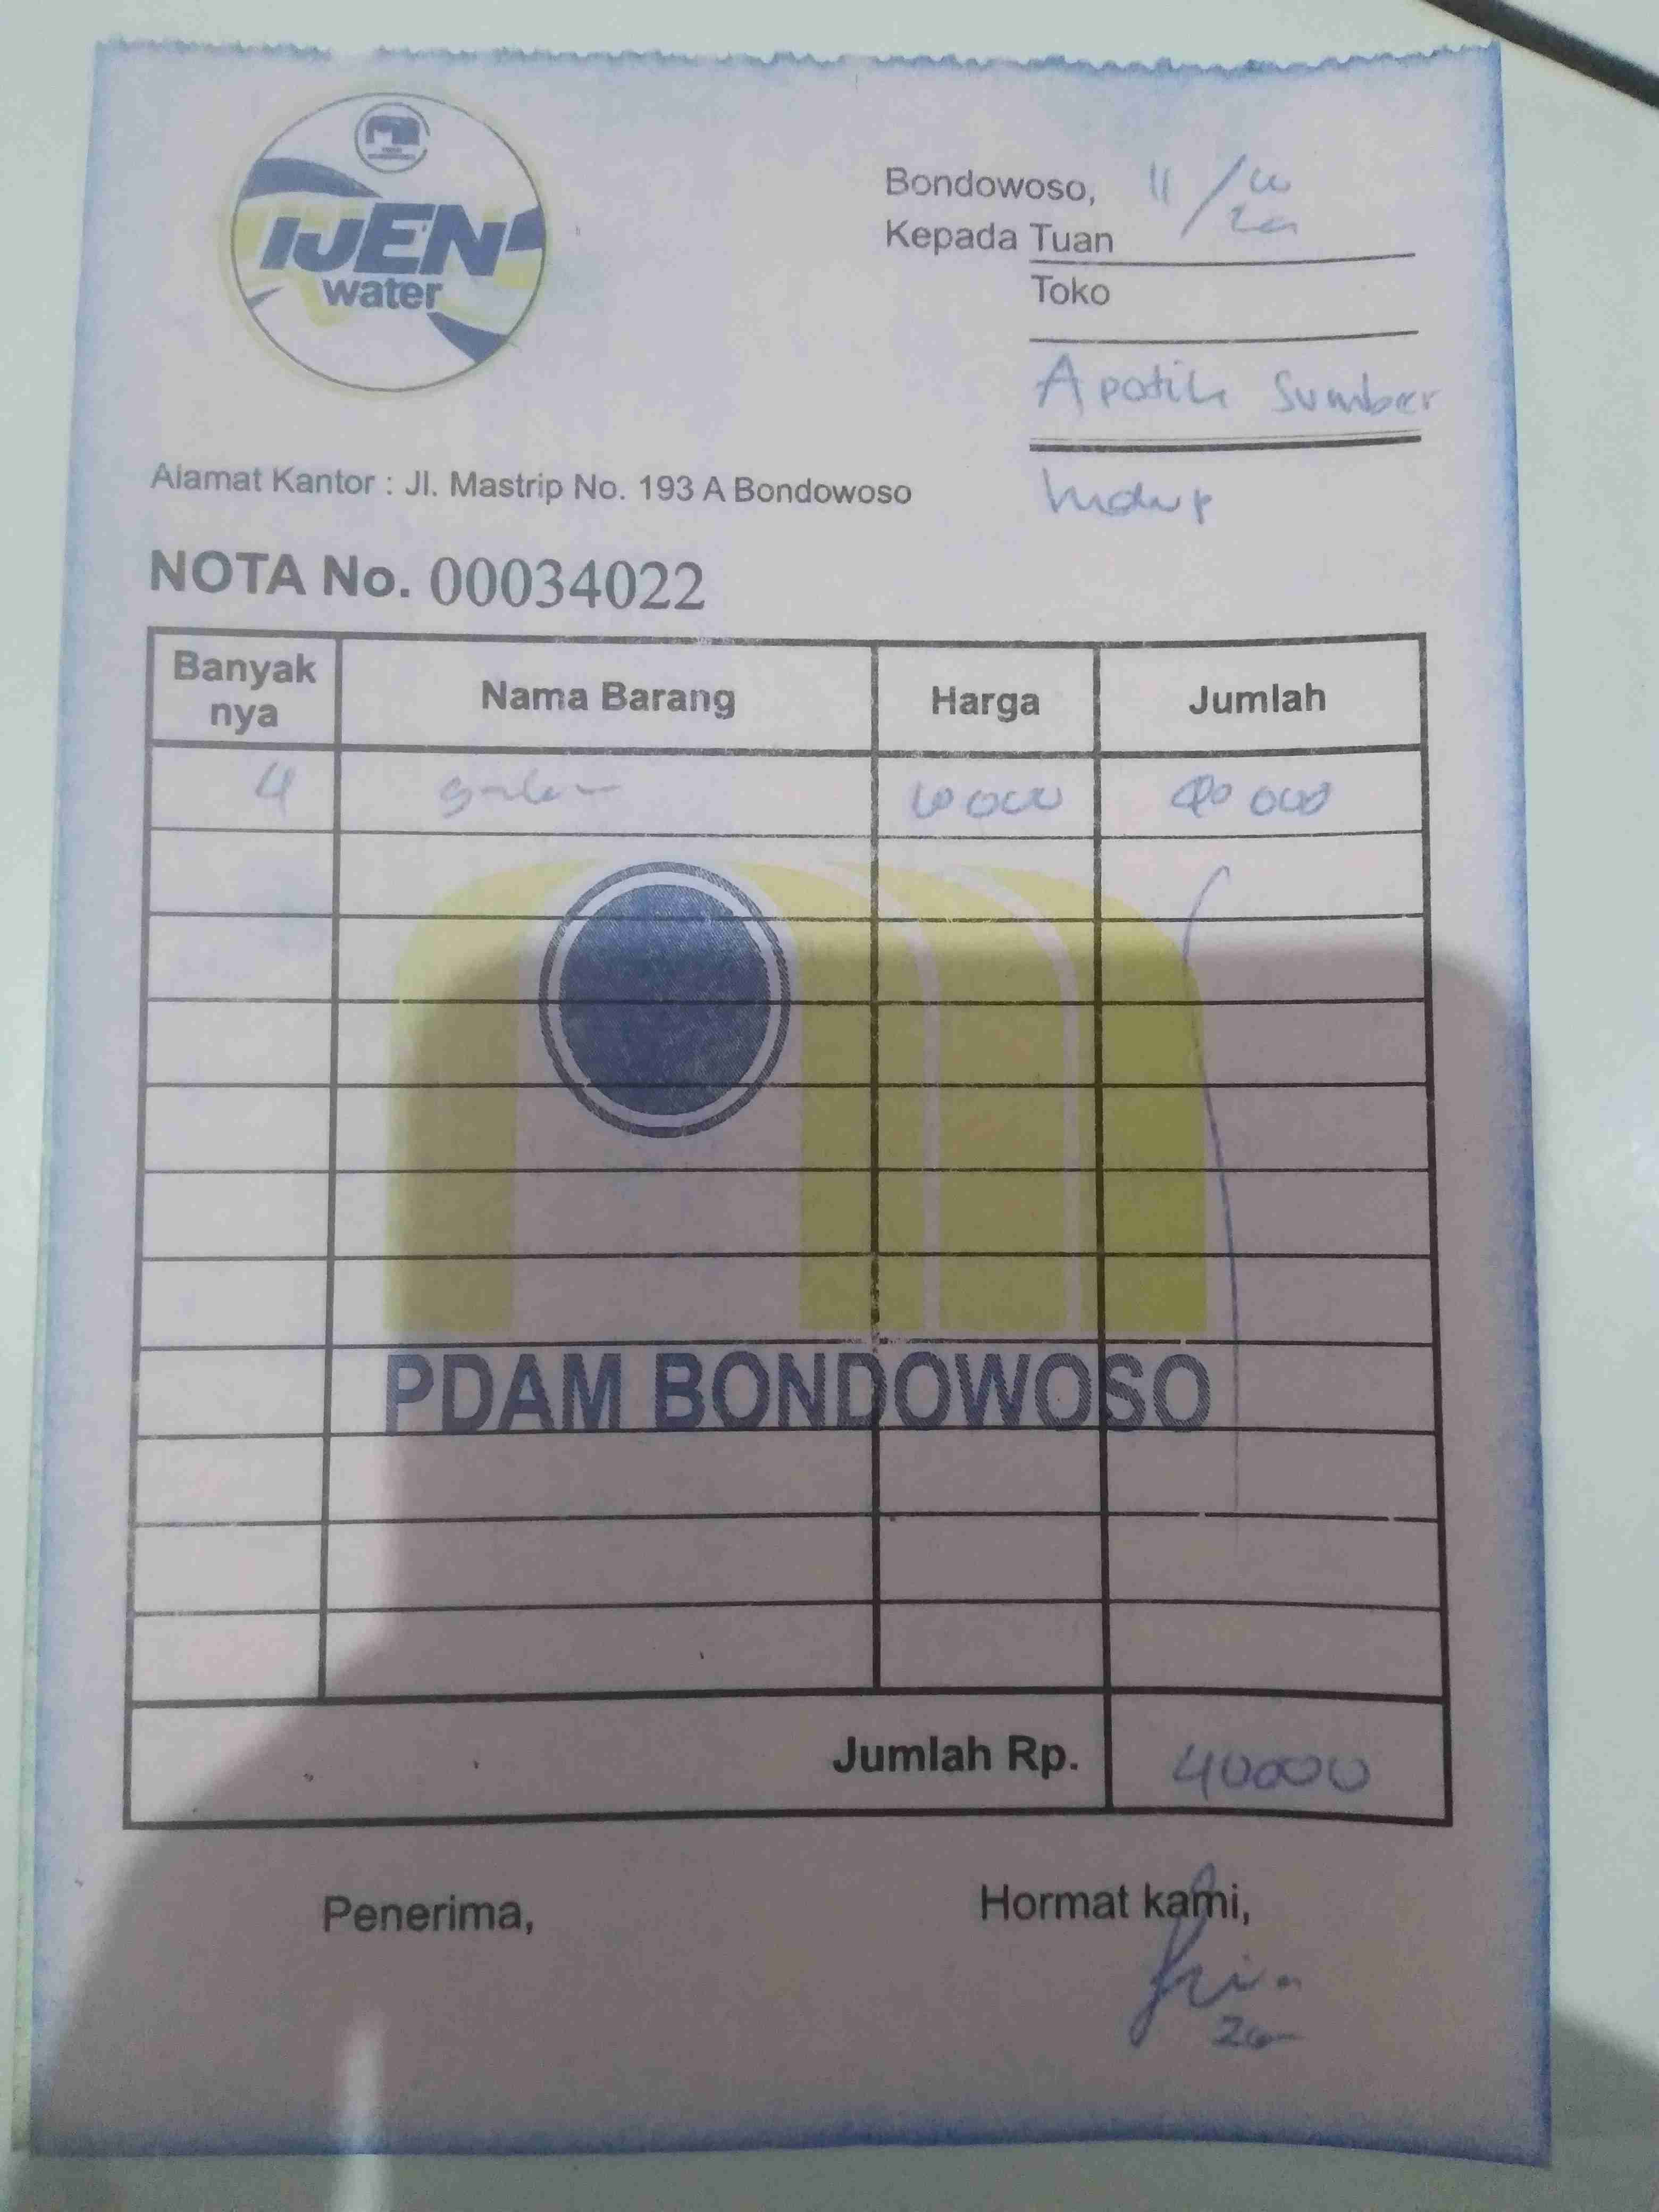 IJEN
water
Bondowoso, 11/10
Kepada Tuan
Toko
Apotik Sumber
hidup
Alamat Kantor : Jl. Mastrip No. 193 A Bondowoso
NOTA No. 00034022
Banyak nya Nama Barang Harga Jumlah
4 galon 10 000 40 000
PDAM BONDOWOSO
Jumlah Rp. 40000
Penerima, Hormat kami,